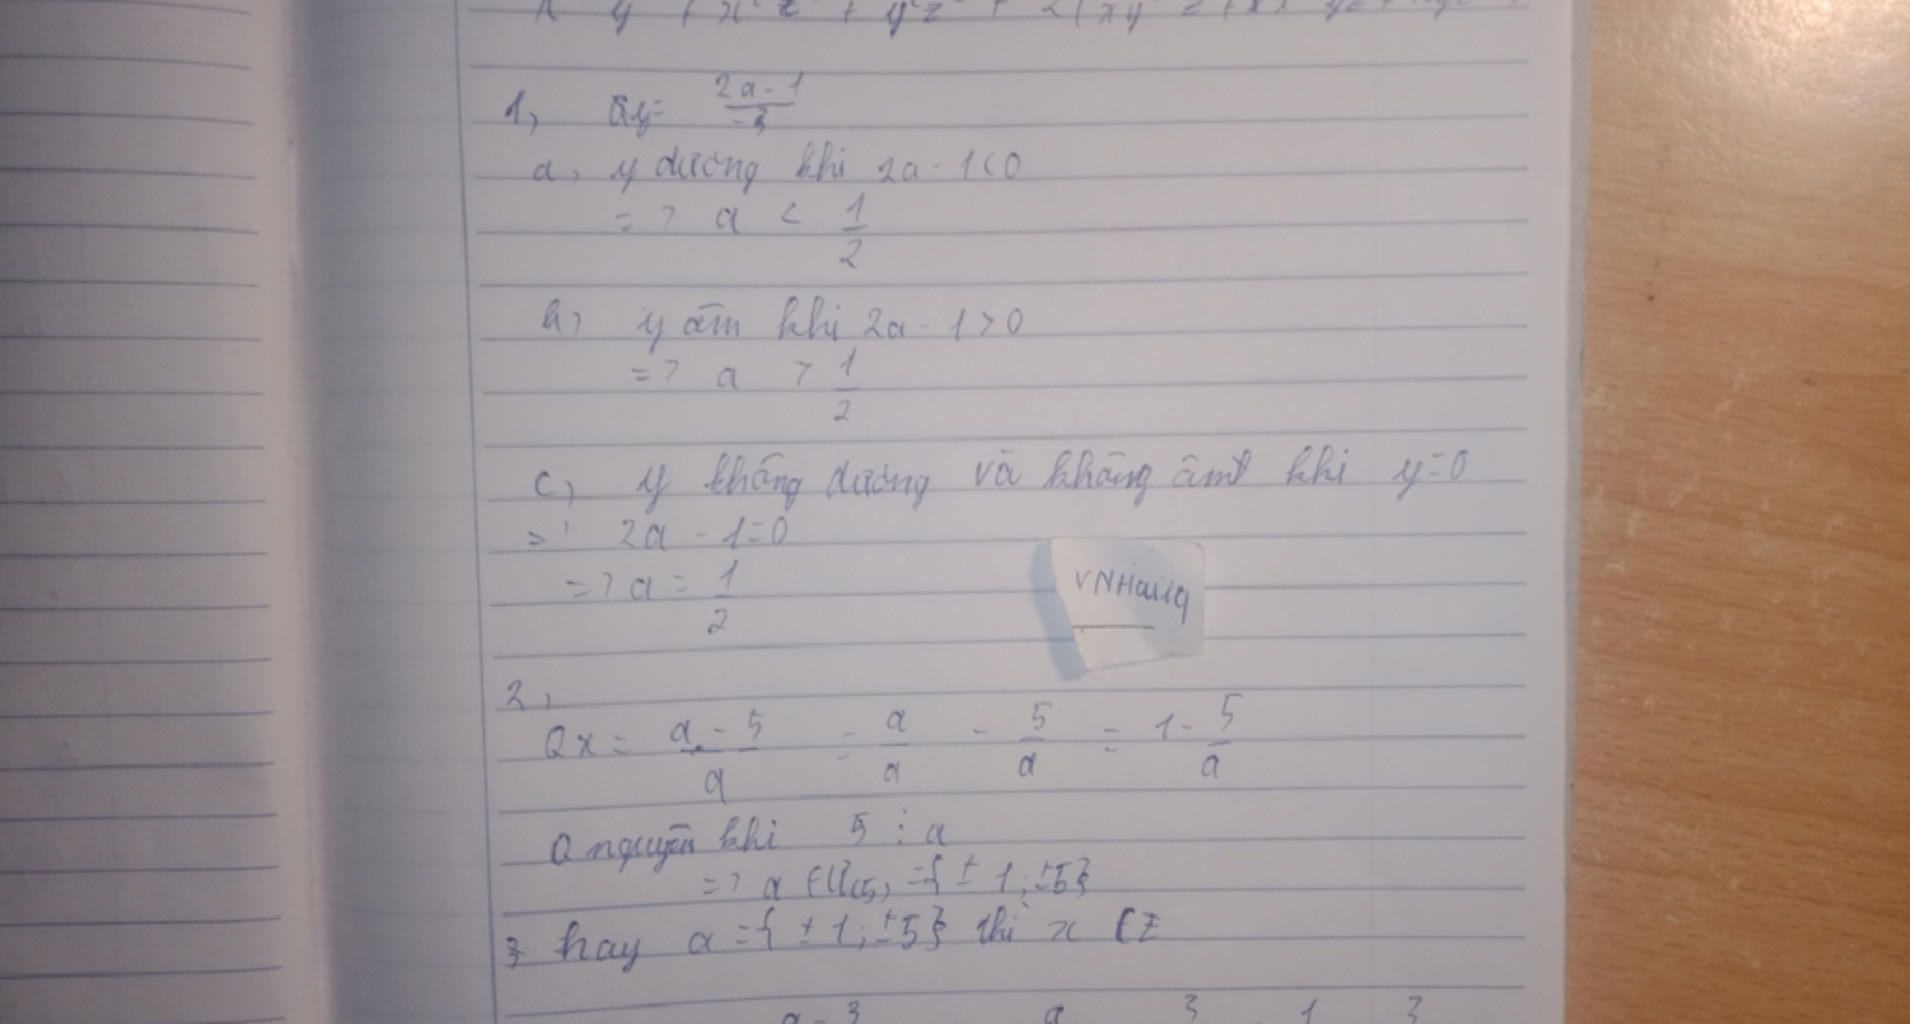 1, y = \frac{2a-1}{-3}
a, y dương khi 2a - 1 < 0
=> a < \frac{1}{2}
b, y âm khi 2a - 1 > 0
=> a > \frac{1}{2}
c, y không dương và không âm khi y = 0
=> 2a - 1 = 0
=> a = \frac{1}{2}
VNHang
2,
x = \frac{a-5}{a} = \frac{a}{a} - \frac{5}{a} = 1 - \frac{5}{a}
nguyên khi 5 ⋮ a
=> a ∈ Ư(5) = {±1; ±5}
hay a = {±1; ±5} thì x ∈ Z